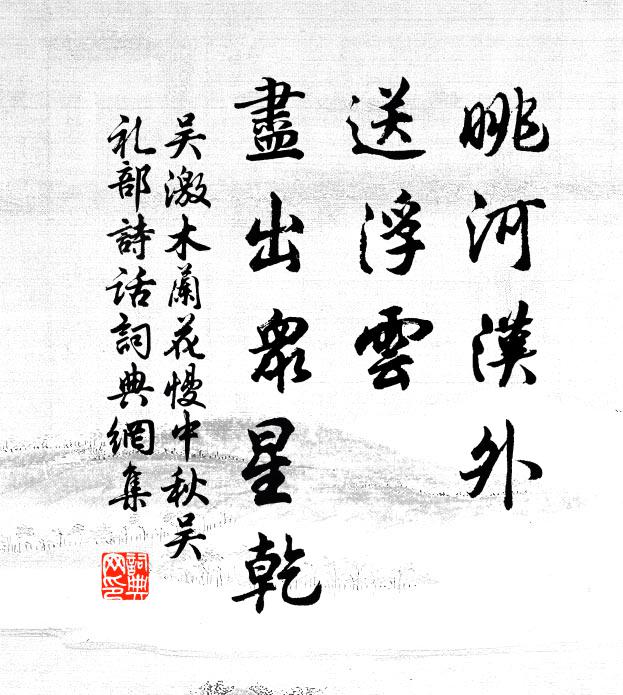 眺河漢外
送浮雲
盡出眾星乾
吴激木蘭花慢中秋吴
礼部詩话詞典網集
詞典網印